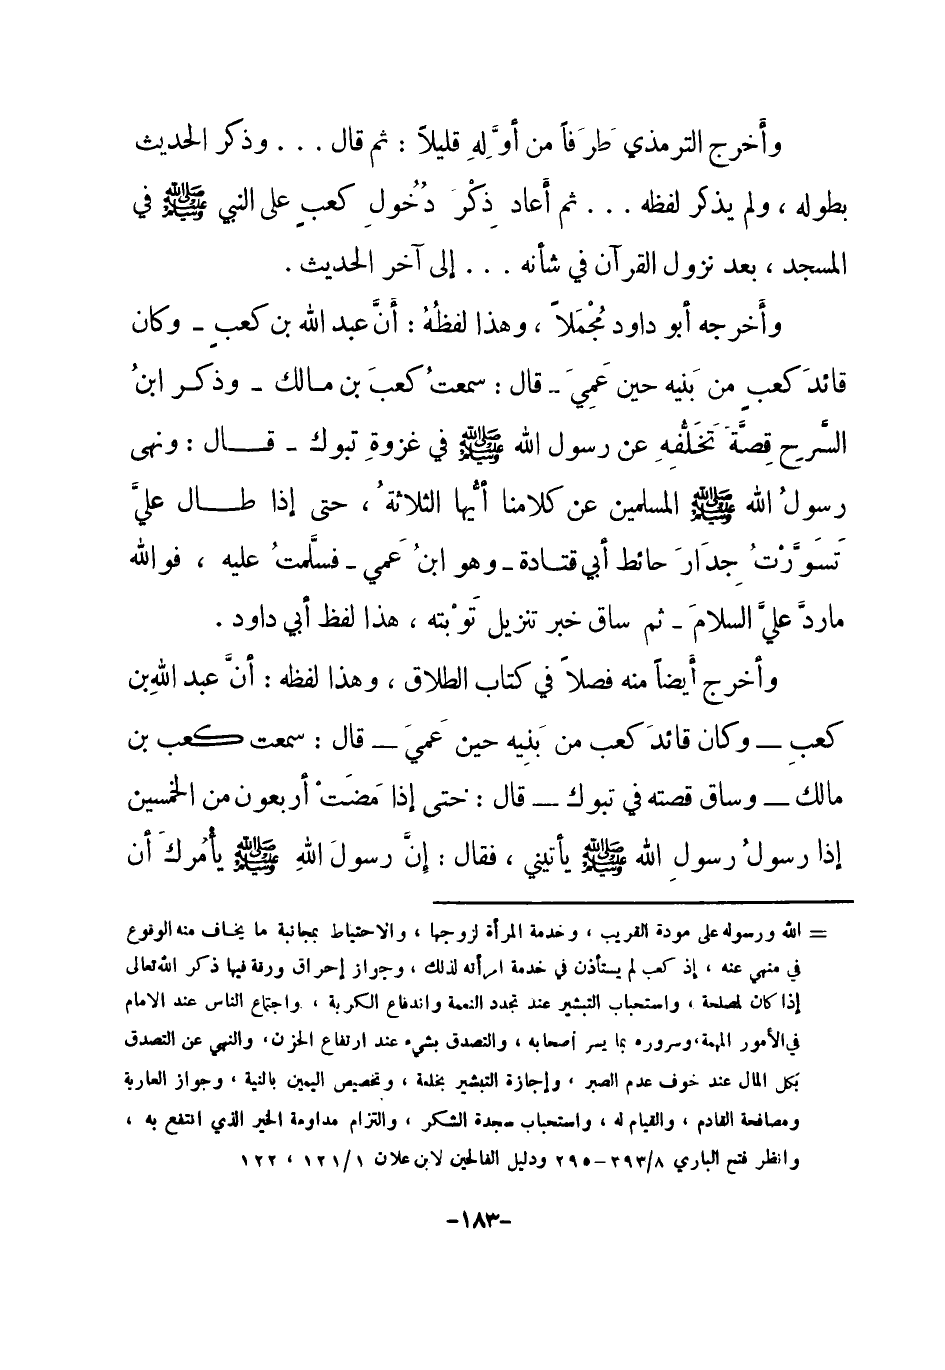 وأَخرج الترمذي طَرَفاً من أوَّلِهِ قليلاً : ثم قال . . . وذكر الحديث
بطوله ، ولم يذكر لفظه . . . ثم أعاد ذِكْرَ دُخُولِ كعبٍ على النبي ﷺ في
المسجد ، بعد نزول القرآن في شأنه . . . إلى آخر الحديث .
وأَخرجه أبو داود مُجْمَلاً ، وهذا لفظُهُ : أنَّ عبد الله بن كعبٍ - وكان
قائدَ كعبٍ من بَنيه حين عَمِيَ - قال : سمعتُ كعبَ بن مالك - وذكر ابنُ
السَّرحِ قِصَّةَ تَخَلُّفِهِ عن رسول الله ﷺ في غزوةِ تبوك - قال : ونهى
رسولُ الله ﷺ المسلمين عن كلامنا أيُّها الثلاثةُ ، حتى إذا طال عليَّ
تَسَوَّرْتُ جِدَارَ حائط أبي قتادة - وهو ابنُ عَمي - فسلَّمتُ عليه ، فوالله
ماردَّ عليَّ السلامَ - ثم ساق خبر تنزيل تَوْبته ، هذا لفظ أبي داود .
وأخرج أيضاً منه فصلاً في كتاب الطلاق ، وهذا لفظه : أنَّ عبد اللهِ بن
كعبٍ - وكان قائدَ كعب من بَنِيه حين عَمِيَ - قال : سمعت كعب بن
مالك - وساق قصته في تبوك - قال : حتى إذا مَضَتْ أربعون من الخمسين
إذا رسولُ رسولِ الله ﷺ يأتيني ، فقال : إنَّ رسولَ اللهِ ﷺ يأْمُركَ أن
= الله ورسوله على مودة القريب ، وخدمة المرأة لزوجها ، والاحتياط بمجانبة ما يخاف منه الوقوع
في منهي عنه ، إذ كعب لم يستأذن في خدمة امرأته لذلك ، وجواز إحراق ورقة فيها ذكر الله تعالى
إذا كان لمصلحة ، واستحباب التبشير عند تجدد النعمة واندفاع الكربة ، واجتماع الناس عند الامام
في الأمور المهمة ، وسروره بما يسر أصحابه ، والتصدق بشيء عند ارتفاع الحزن ، والنهي عن التصدق
بكل المال عند خوف عدم الصبر ، وإجازة التبشير بخلعة ، وتخصيص اليمين بالنية ، وجواز العارية
ومصافحة القادم ، والقيام له ، واستحباب سجدة الشكر ، والتزام مداومة الخير الذي انتفع به ،
وانظر فتح الباري ٢٩٣/٨-٢٩٥ ودليل الفالحين لابن علان ١٢١/١ ، ١٢٢
-١٨٣-